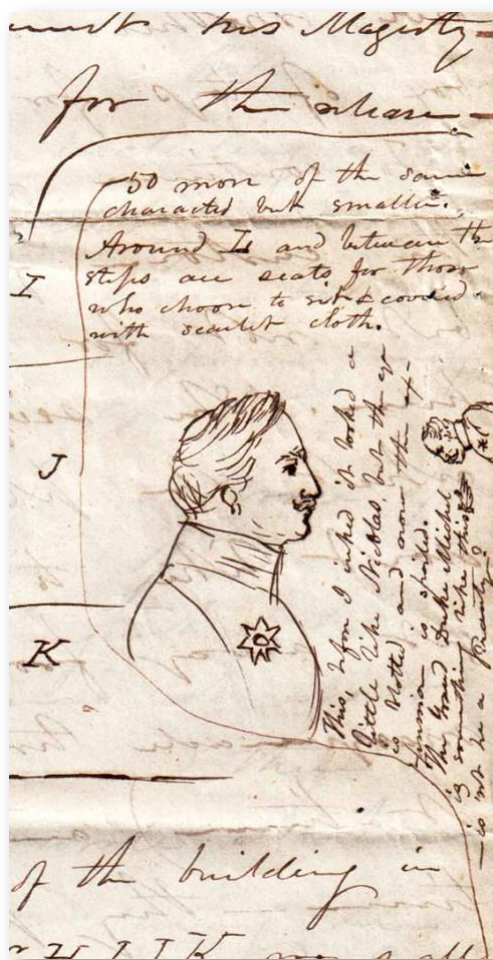 his Magesty
for the
50 more of the same
character but smaller.
Around Is and between the
steps are seats for those
who choose to sit & covered
with scarlet cloth.
I
J
K
This, before I inked it looked a
little like Nicklas, but the eye
is blotted and now the ex-
pression is spoiled.
The Grand Duke Michel
is something like this
— is not he a beauty?
of the building in